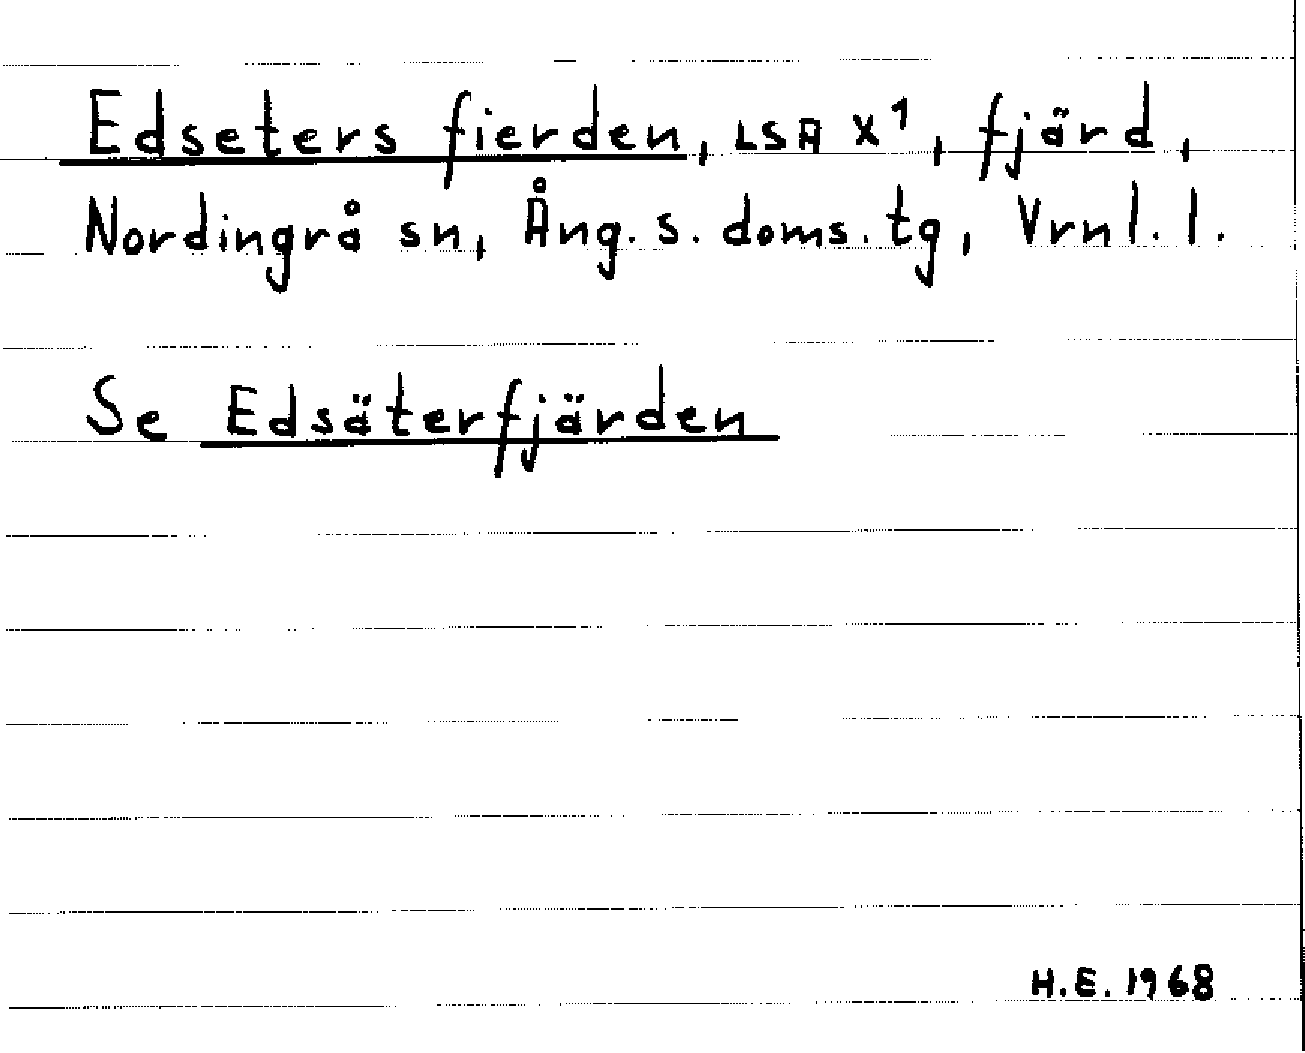 Edseters fierden, LSA X¹, fjärd,
Nordingrå sn, Ång. s. doms. tg, Vrnl. l.
Se Edsäterfjärden
H.E. 1968